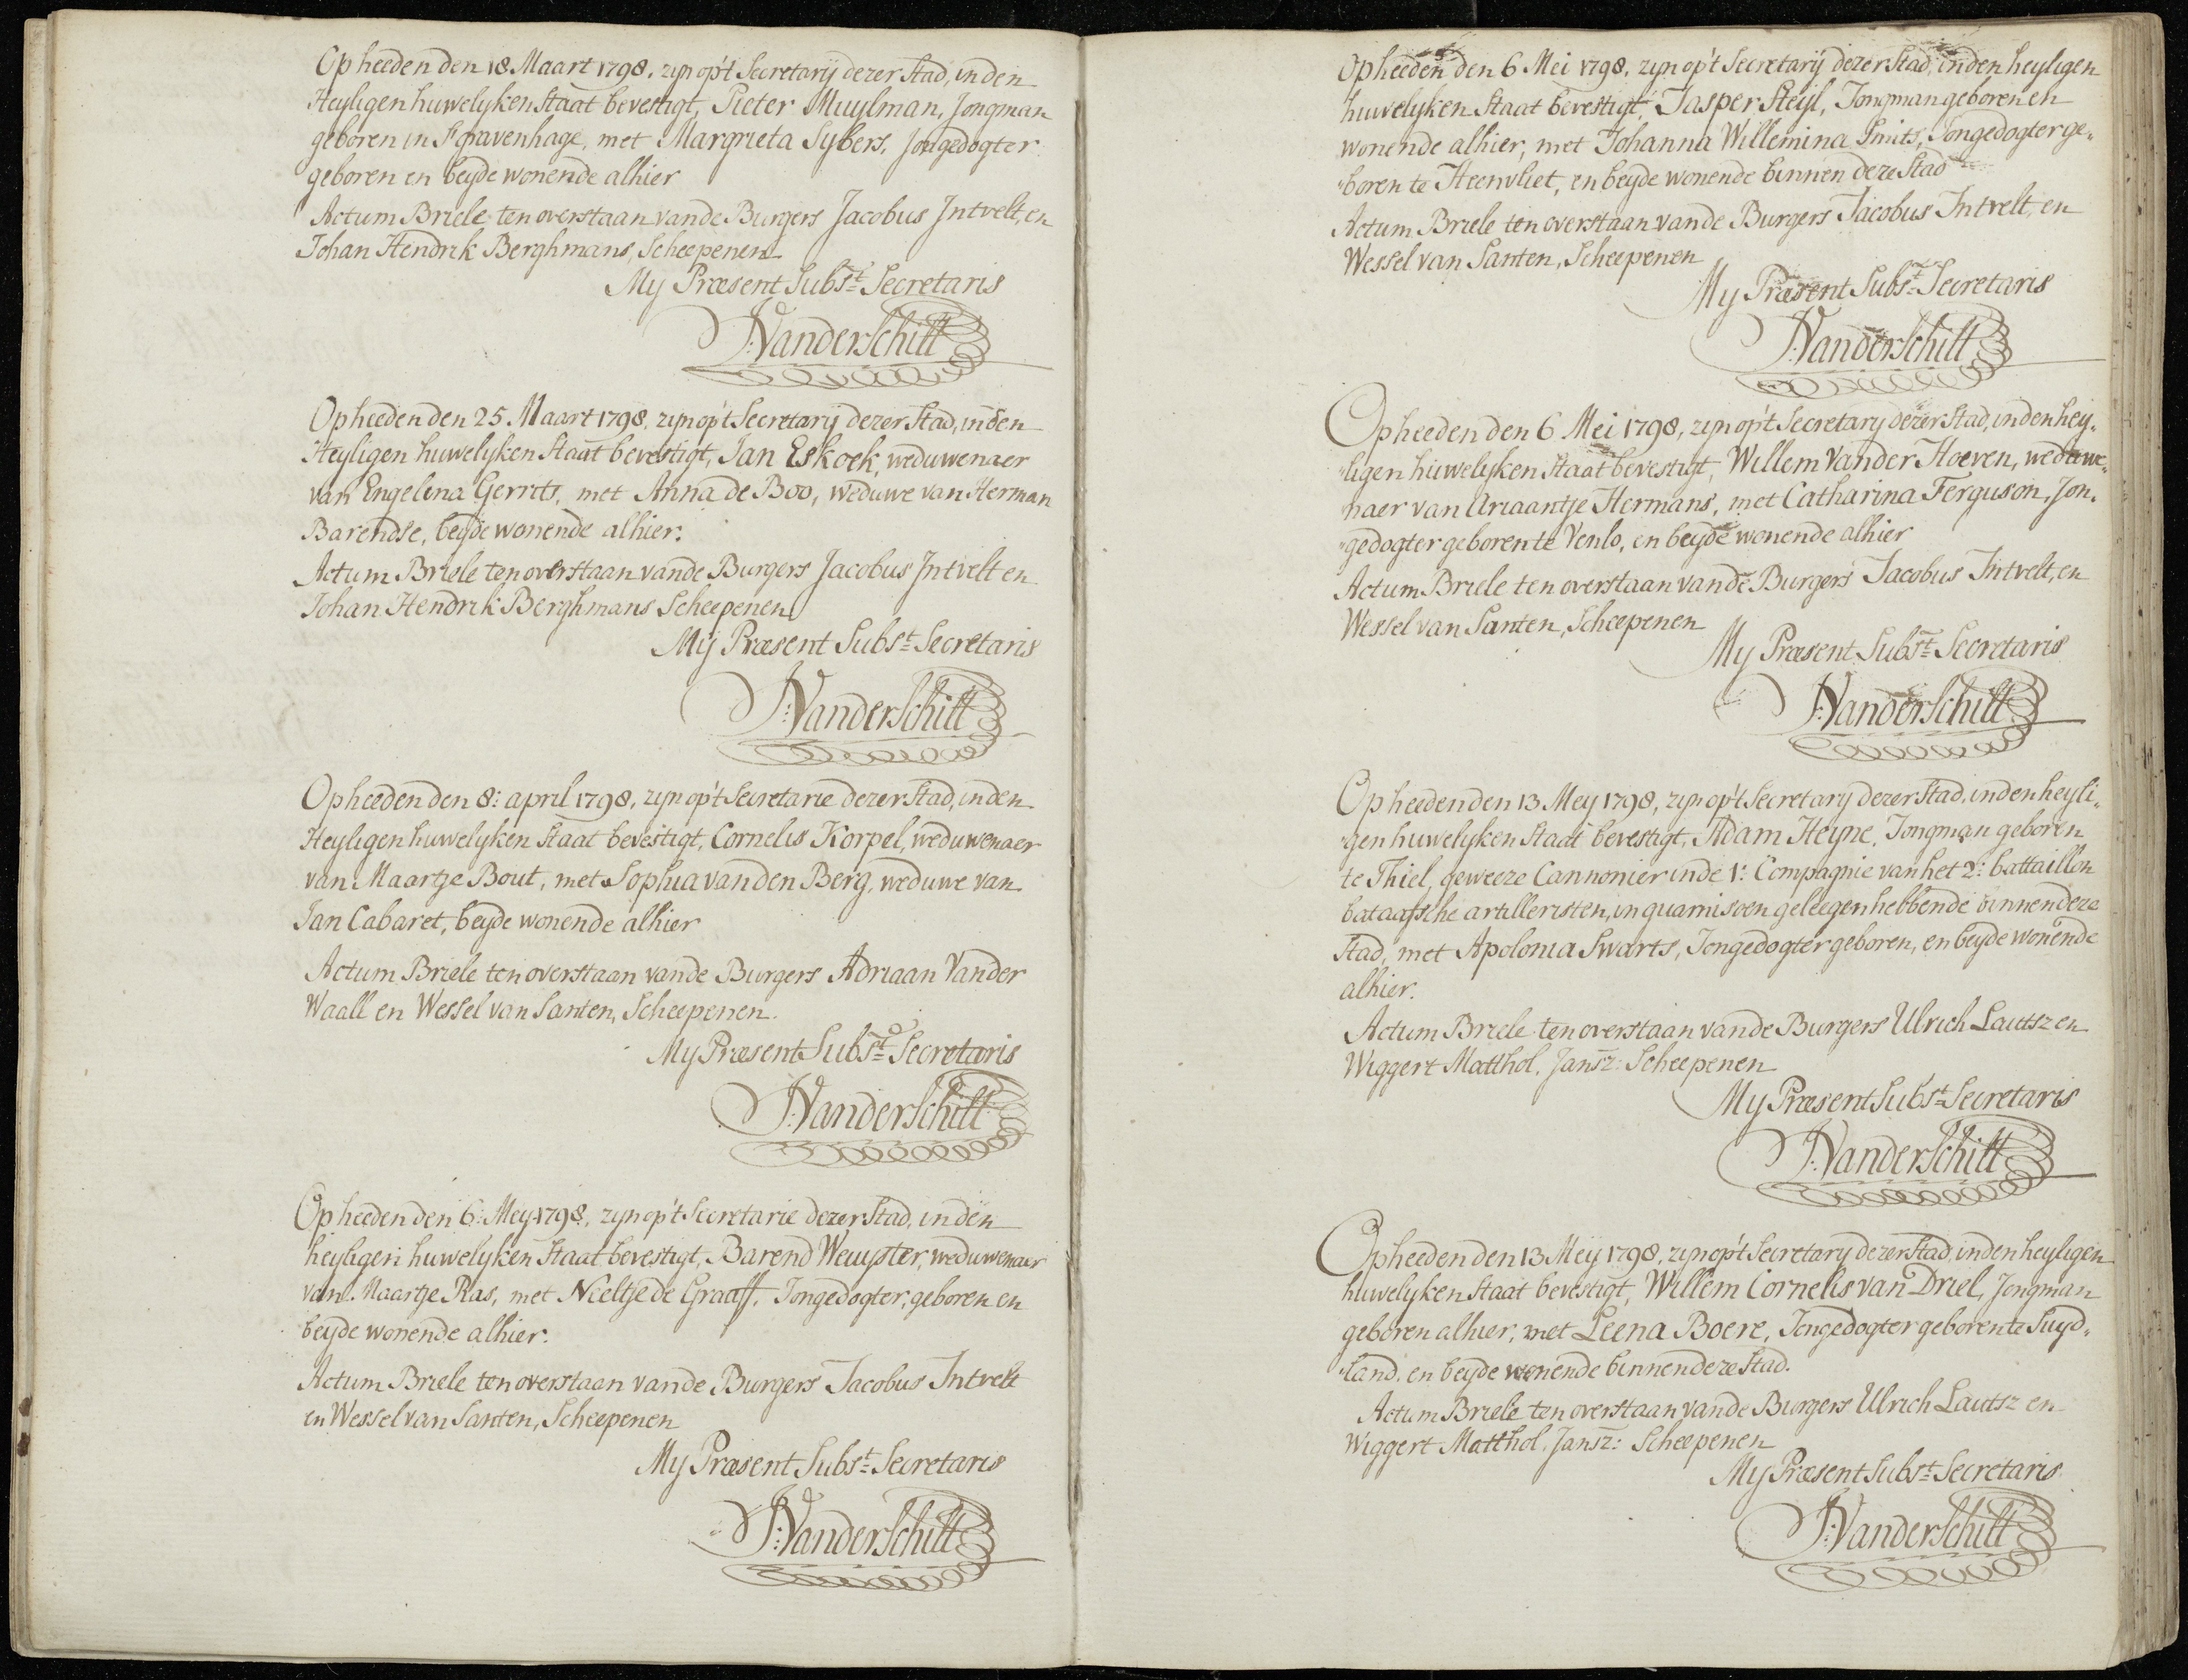 Op heeden den 18. Maart 1798. zyn op't Secretarij dezer Stad, in den
Heyligen huwelyken Staat bevestigt, Pieter Muylman, Jongman
geboren in S'gravenhage, met Margrieta Sybers, Jongedogter
geboren en beyde wonende alhier
Actum Briele ten overstaan vande Burgers Jacobus Intvelt, en
Johan Hendrik Berghmans, Scheepenen
My Præsent Subst. Secretaris
J: Vanderschilt
Op heeden den 25. Maart 1798. zyn op't Secretarij dezer Stad, in den
Heyligen huwelyken Staat bevestigt, Jan Eskoek, weduwenaer
van Engelina Gerrits, met Anna de Boo, weduwe van Herman
Barendse, beyde wonende alhier.
Actum Briele ten overstaan vande Burgers Jacobus Intvelt en
Johan Hendrik Berghmans Scheepenen
Mij Præsent Subst. Secretaris
J: Vanderschilt
Op heeden den 8: april 1798, zyn op't Secretarie dezer Stad, in den
Heyligen huwelyken Staat bevestigt, Cornelis Korpel, weduwenaer
van Maartje Bout, met Sophia van den Berg, weduwe van
Jan Cabaret, beyde wonende alhier
Actum Briele ten overstaan vande Burgers Adriaan Vander
Waall en Wessel van Santen, Scheepenen.
My Præsent Subst. Secretaris
J: Vanderschilt
Op heeden den 6: Mey 1798, zyn op't Secretarie dezer Stad, in den
heyligen huwelyken Staat bevestigt, Barend Wewyster, weduwenaer
van Maartje Ras, met Neeltje de Graaff, Jongedogter, geboren en
beyde wonende alhier.
Actum Briele ten overstaan vande Burgers Jacobus Intvelt
en Wessel van Santen, Scheepenen
My Præsent Subst. Secretaris
J: Vanderschilt
Op heeden den 6 Mei 1798, zyn op't Secretarij dezer Stad, in den heyligen
huwelyken Staat bevestigt, Jasper Steyl, Jongman geboren en
wonende alhier, met Johanna Willemina Smits, Jongedogter ge„
„boren te Heenvliet, en beyde wonende binnen deze Stad
Actum Briele ten overstaan vande Burgers Jacobus Intvelt, en
Wessel van Santen, Scheepenen
My Præsent Subst. Secretaris
J: Vanderschilt
Op heeden den 6 Mei 1798, zyn op't Secretary dezer Stad, in den hey„
„ligen huwelyken Staat bevestigt, Willem Vander Hoeven, weduwe„
naer van Ariaantje Hermans, met Catharina Ferguson, Jon„
„gedogter geboren te Venlo, en beyde wonende alhier
Actum Briele ten overstaan vande Burgers Jacobus Intvelt, en
Wessel van Santen, Scheepenen
My Præsent Subst. Secretaris
J: Vanderschilt
Op heeden den 13 Mey 1798, zyn op't Secretary dezer Stad, in den heyli„
„gen huwelyken Staat bevestigt, Adam Heyne, Jongman geboren
te Thiel, geweeze Cannonier in de 1: Compagnie van het 2: battaillon
bataafsche artilleristen, in quarnisoen geleegen hebbende binnen deze
Stad, met Apolonia Swarts, Jongedogter geboren, en beyde wonende
alhier.
Actum Briele ten overstaan vande Burgers Ulrich Lautsz en
Wiggert Matthol. Jansz: Scheepenen
My Præsent Subst. Secretaris
J: Vanderschilt
Op heeden den 13 Meij 1798, zyn op't Secretary dezer Stad, in den heyligen
huwelyken Staat bevestigt, Willem Cornelis van Driel, Jongman
geboren alhier, met Leena Boere, Jongedogter geboren te Suyd„
„land, en beyde wonende binnen deze Stad.
Actum Briele ten overstaan vande Burgers Ulrich Lautsz en
Wiggert Matthol. Jansz: Scheepenen
My Præsent Subst. Secretaris
J: Vanderschilt